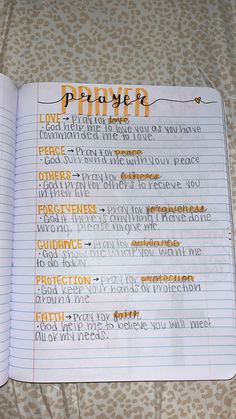 PRAYER
prayer
LOVE → pray for love
• God help me to love you as you have
commanded me to love.
PEACE → Pray for peace
• God surround me with your peace
OTHERS → pray for others
• God I pray for others to recieve you
in their life
FORGIVENESS → pray for forgiveness
• God if there is anything I have done
wrong, please forgive me.
GUIDANCE → pray for guidance
• God show me what you want me
to do today
PROTECTION → pray for protection
• God keep your hands of protection
around me.
FAITH → pray for faith
• God help me to believe you will meet
all of my needs.